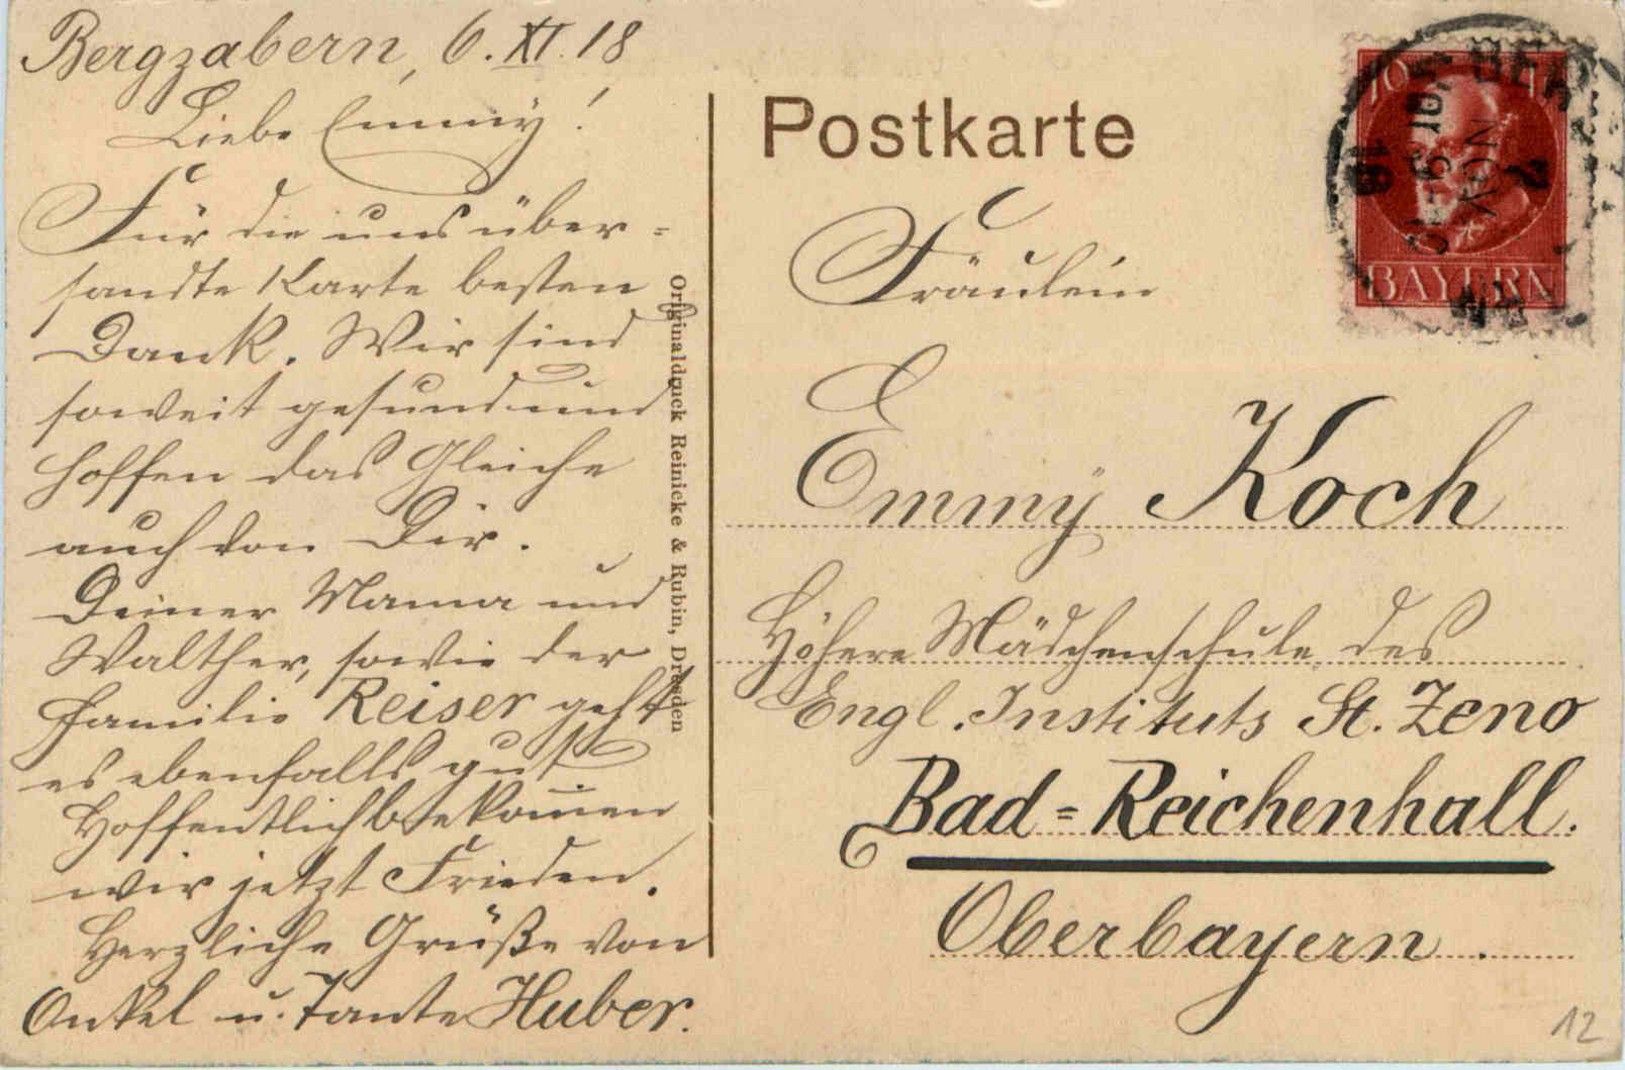 Bergzabern, 6. XI. 18
Liebe Emmy!
Für die uns über-
sandte Karte besten
Dank. Wir sind
soweit gesund und
hoffen das Gleiche
auch von Dir.
Deiner Mama und
Walther, sowie der
Familie Reiser geht
es ebenfalls gut.
Hoffentlich bekom̄en
wir jetzt Frieden.
Herzliche Grüße von
Onkel u. Tante Huber.
Originaldruck Reinicke & Rubin, Dresden
Postkarte
10 10
BAYERN
BER
7
NOV
18
Fräulein
Emmy Koch
Höhere Mädchenschule des
Engl. Instituts St. Zeno
Bad=Reichenhall.
Oberbayern.
12